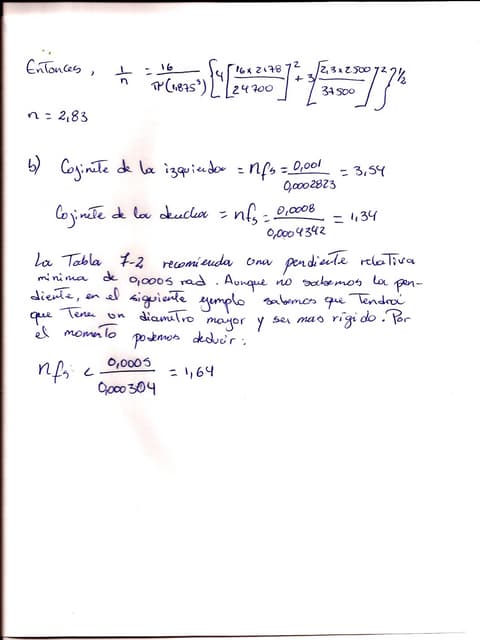 Entonces, 1/n = 16/π(1,875³) {4[16x2178/24700]² + 3[2,3x2500/37500]²}½
n = 2,83
b) Cojinete de la izquierdo = nfs = 0,001/0,0002823 = 3,54
Cojinete de la derecha = nfs = 0,0008/0,0004342 = 1,34
La Tabla 7-2 recomienda una pendiente relativa
minima de 0,0005 rad. Aunque no sabemos la pen-
diente, en el siguiente ejemplo sabemos que Tendrá
que Tener un diametro mayor y ser mas rígido. Por
el momento podemos deducir:
nfs < 0,0005/0,000304 = 1,64